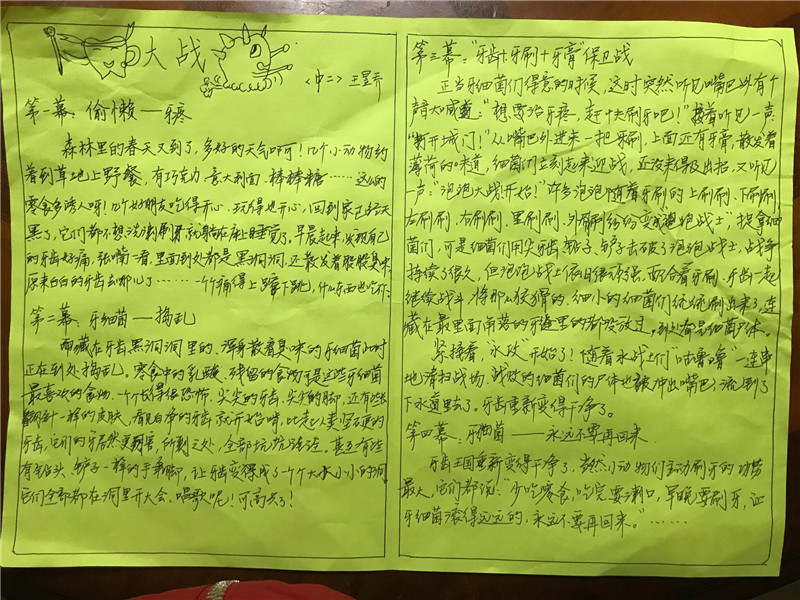 大战
<中二> 王显齐
第一幕：偷懒——牙疼
森林里的春天又到了，多好的天气啊！几个小动物约
着到草地上野餐，有巧克力、意大利面、棒棒糖……这么多
零食多诱人呀！几个好朋友吃得开心，玩得也开心，回到家已经天
黑了，它们都不想洗漱刷牙就躺在床上睡觉了。早晨起来，发现自己
的牙齿好痛，张嘴一看，里面到处都是黑洞洞，还散发着股股臭味，
原来白白的牙齿去哪儿了……一个个痛得上蹿下跳，什么东西也吃不
第二幕：牙细菌——捣乱
而藏在牙齿黑洞洞里的、浑身散着臭味的牙细菌
正在到处捣乱。零食中的乳酸、残留的食物于是这些牙细菌
最喜欢的食物。一个个长得很恐怖，尖尖的牙齿、尖尖的脚，还有些
一样的皮肤，看见白净的牙齿就开始啃，比起人类坚硬的
牙齿，它们的牙居然更厉害，所到之处，全部坑坑洼洼，甚至有些
有钻头、铲子一样的手和脚，让牙齿变得成了一个个大大小小的洞，
它们全部都在洞里开大会、唱歌呢！可高兴了！
第三幕：“牙齿+牙刷+牙膏”保卫战
正当牙细菌们得意的时候，这时突然听见嘴巴外有个
声音大喊道：“想要治牙疼，赶快去刷牙吧！”接着听见一声
“打开城门！”从嘴巴外进来一把牙刷，上面还有牙膏，散发着
薄荷的味道，细菌们立刻起来迎战，还没来得及出招，又听见
一声：“泡泡大战开始！”许多泡泡随着牙刷的上刷刷、下刷刷、
左刷刷、右刷刷、里刷刷、外刷刷纷纷变成“泡泡战士”捉拿细
菌们，可是细菌们用尖牙齿、钻子、铲子去破了泡泡战士，战争
持续了很久，但泡泡战士依旧继续坚强，配合着牙刷、牙齿一起
继续战斗，将那些狡猾的、细小的细菌们统统刷出来了，连
藏在最里面角落的牙缝里的都没放过，到处都是细菌尸体。
紧接着，“水攻”开始了！随着水战士们“咕噜噜”一连串
地清扫战场，战败的细菌们的尸体也被冲出嘴巴，流到了
下水道里去了。牙齿重新变得干净了。
第四幕：牙细菌——永远不要再回来
牙齿王国重新变得干净了，当然小动物们主动刷牙的功劳
最大，它们都说：“少吃零食，吃完要漱口，早晚要刷牙，让
牙细菌滚得远远的，永远不要再回来。”……